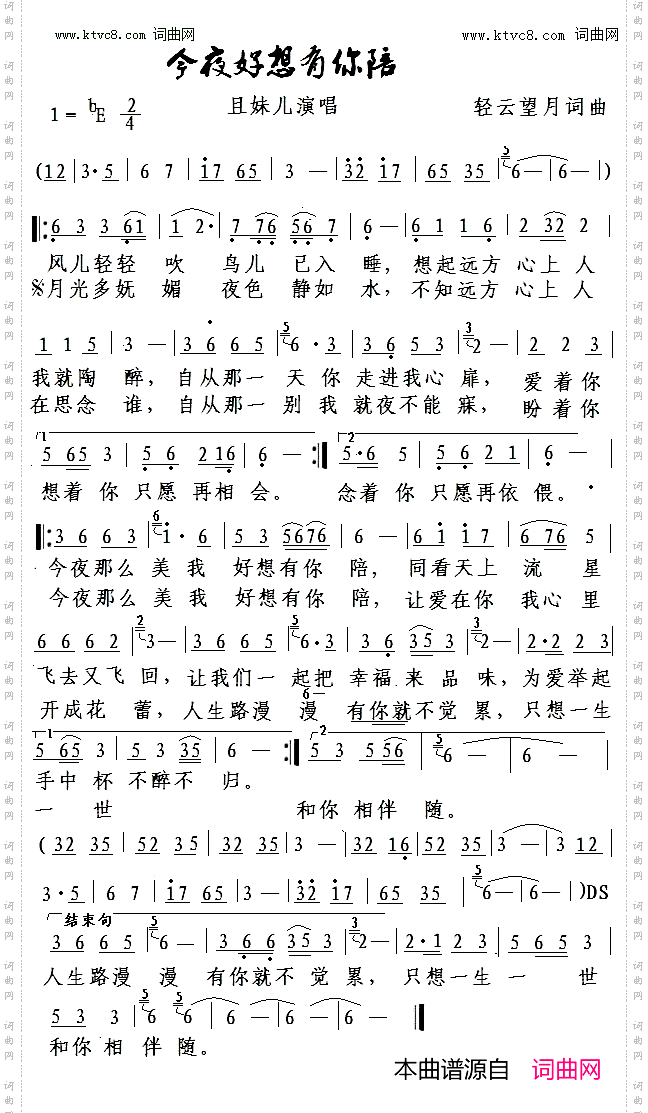 www.ktvc8.com 词曲网 www.ktvc8.com 词曲网
今夜好想有你陪
1=bE 2/4 且妹儿演唱 轻云望月词曲
(12 | 3·5 | 6 7 | 17 65 | 3 — | 32 17 | 65 35 | 6— | 6— |)
6 3 3 61 | 1 2· | 7 76 56 7 | 6 — | 6 1 1 6 | 2 32 2 |
风儿轻轻 吹 鸟儿 已入 睡，想起远方 心上 人
※月光多妩 媚 夜色 静如 水，不知远方 心上 人
1 1 5 | 3 — | 3 6 6 5 | 6 · 3 | 3 6 5 3 | 2— | 2 2 3 |
我就陶 醉，自从那一 天 你 走进我心 扉， 爱 着 你
在思念 谁，自从那一 别 我 就夜不能 寐， 盼 着 你
5 65 3 | 5 6 2 16 | 6 — :| 5·6 5 | 5 6 2 1 | 6 — |
想着 你 只愿 再相 会。 念着 你 只愿再依 偎。
3 6 6 3 | 1· 6 | 5 3 5676 | 6 — | 6 1 17 | 6 76 5 |
今夜那么 美 我 好想有你 陪， 同看天上 流 星
今夜那么 美 我 好想有你 陪， 让爱在你 我心 里
6 6 6 2 | 3— | 3 6 6 5 | 6·3 | 3 6 35 3 | 2— | 2·2 2 3 |
飞去又飞 回，让我们一 起把 幸福来 品 味，为爱举起
6—
开成花 蕾，人生路漫 漫 有你就不觉 累，只想一生
5 65 3 | 5 3 35 | 6 — :| 5 3 556 | 6 — | 6 — |
手中 杯 不醉不 归。
一 世 和你 相伴 随。
( 32 35 | 52 35 | 32 35 | 3 — | 32 16 | 52 35 | 3 — | 3 12 |
3·5 | 6 7 | 17 65 | 3— | 32 17 | 65 35 | 6— | 6— |)DS
结束句
3 6 6 5 | 6 — | 3 6 6 35 3 | 2— | 2·1 2 3 | 5 65 3 |
人生路漫 漫 有你就不 觉 累， 只想一生 一 世
5 3 3 | 6 6 | 6 — | 6 — | 6 — ‖
和你 相 伴 随。
本曲谱源自 词曲网